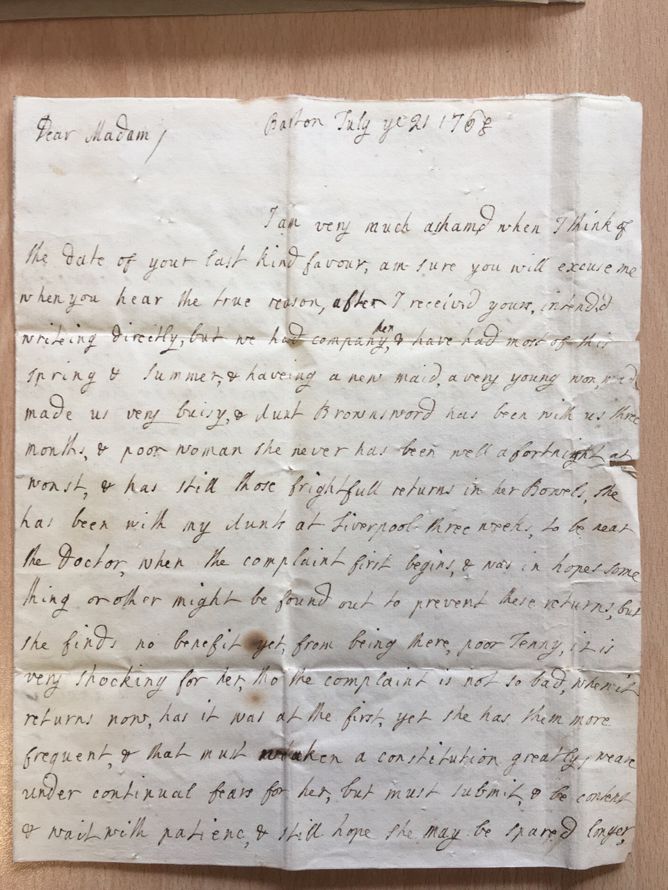 Dear Madam / Barton July ye 21 1768
I am very much asham'd when I think of
the date of your last kind favour, am sure you will excuse me
when you hear the true reason, after I receiv'd yours, intend'd
writeing directly, but we had company then, & have had most of this
spring & Summer, & haveing a new maid, a very young won, made
made us very buisy, & Aunt Brownsword has been with us three
months, & poor woman she never has been well a fortnight at
worst, & has still those frightfull returns in her Bowels, she
has been with my Aunts at Liverpool three weeks, to be near
the Doctor, when the complaint first begins, & was in hopes some
thing or other might be found out to prevent these returns, but
she finds no benefit yet, from being there, poor Jenny, it is
very shocking for her, tho the complaint is not so bad, when it
returns now, has it was at the first, yet she has them more
frequent, & that must weaken a constitution greatly, weare
under continual fears for her, but must submit, & be content
& wait with patienc, & still hope she may be spared longer,